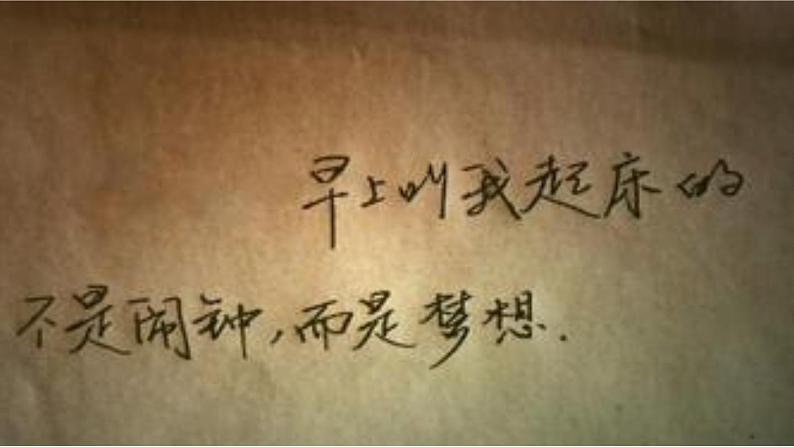 早上叫我起床的
不是闹钟,而是梦想.